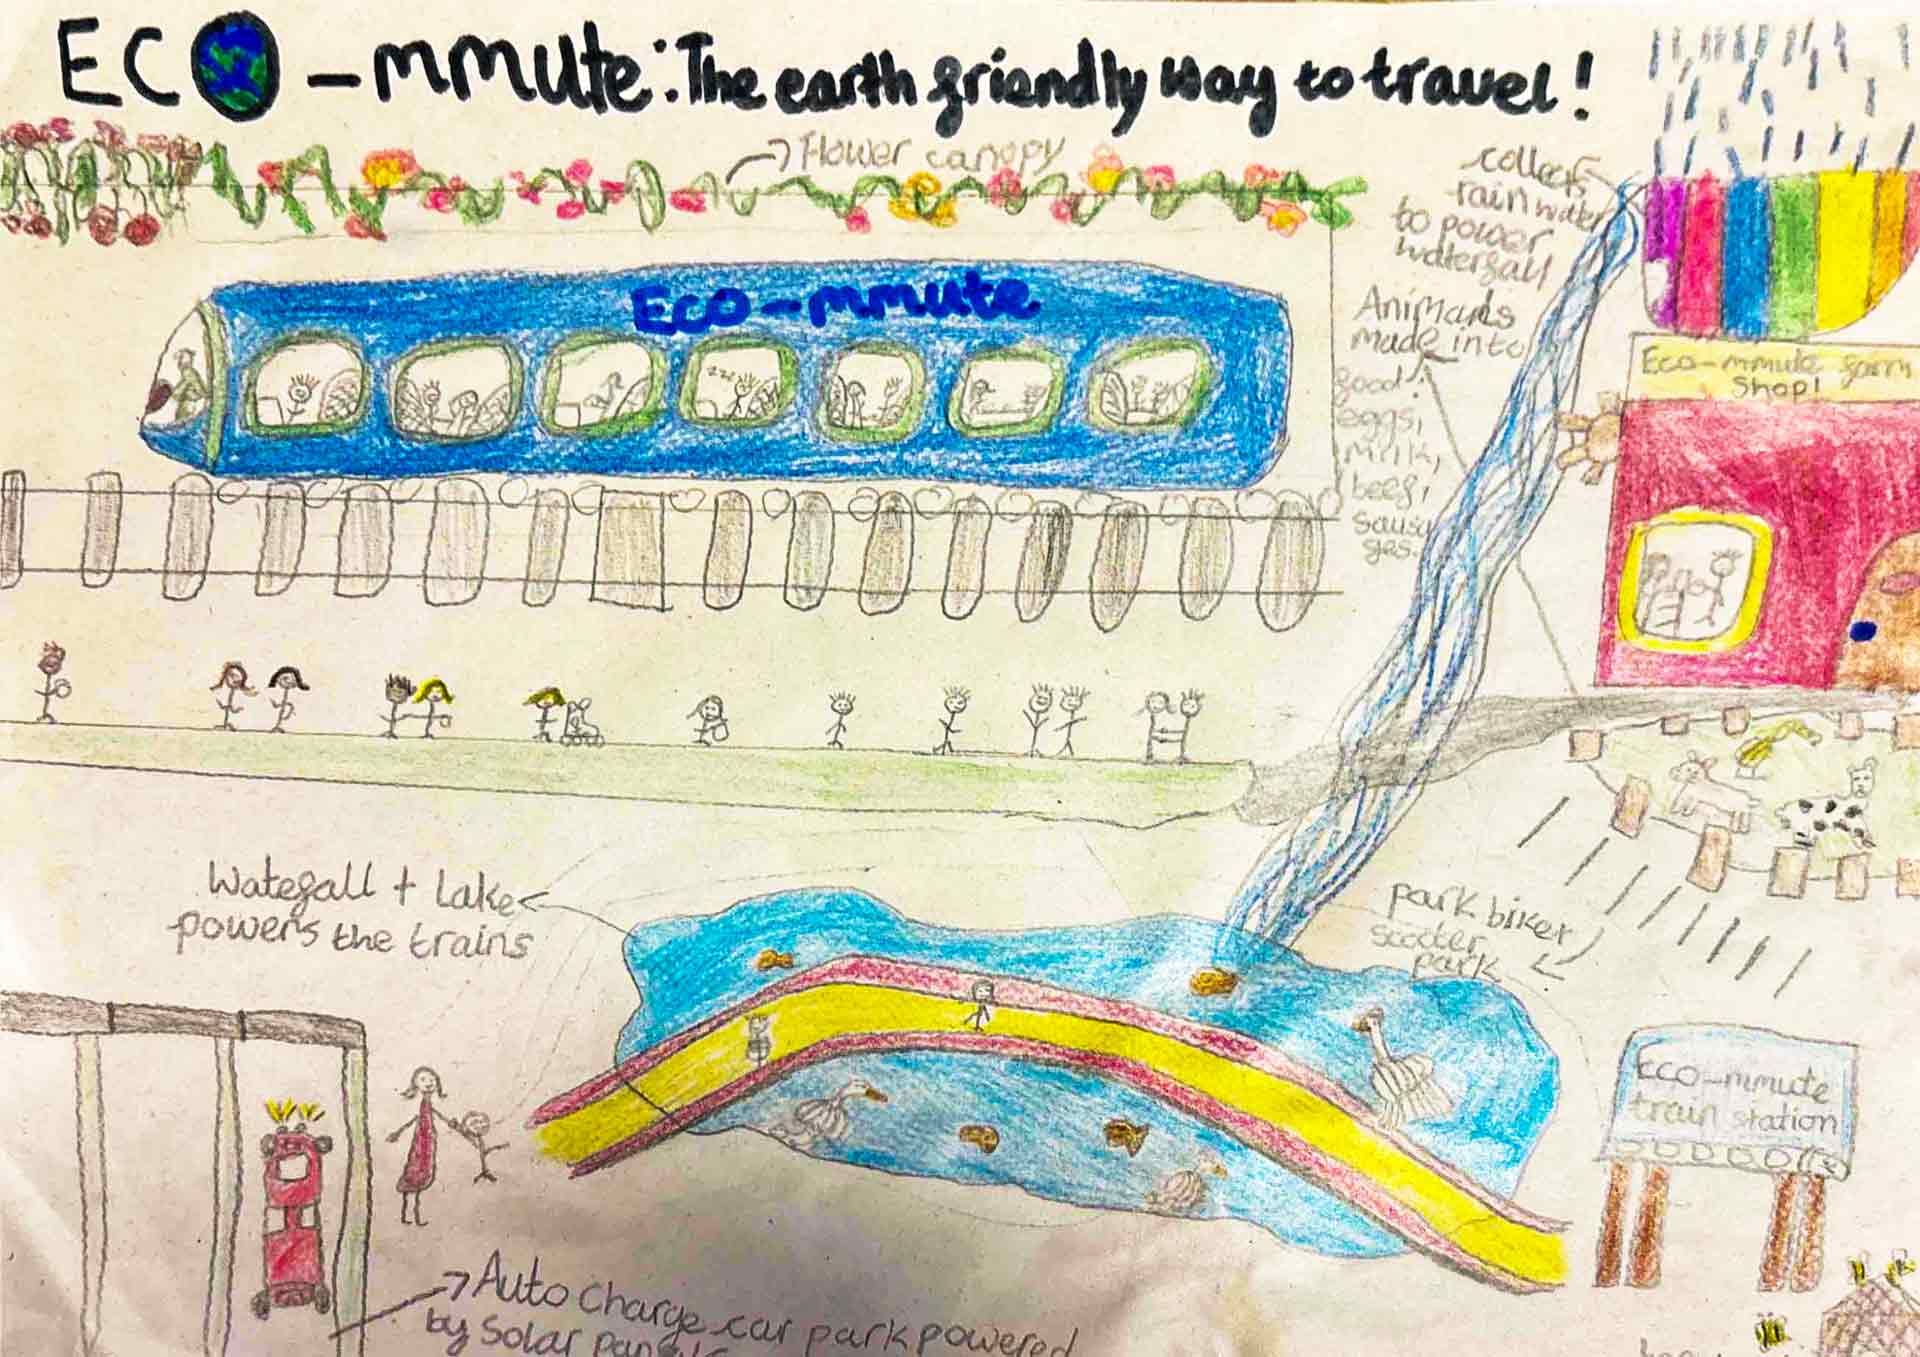 ECO-mmute: The earth friendly way to travel!
Flower canopy
collects
rain water
to power
waterfall
Eco-mmute
Animals
made into
food:
eggs,
milk,
beef,
sausa
ges.
Eco-mmute farm
Shop!
zzz
Waterfall + Lake
powers the trains
park biker
scooter
park
Eco-mmute
train station
Auto Charge car park powered
by Solar panels